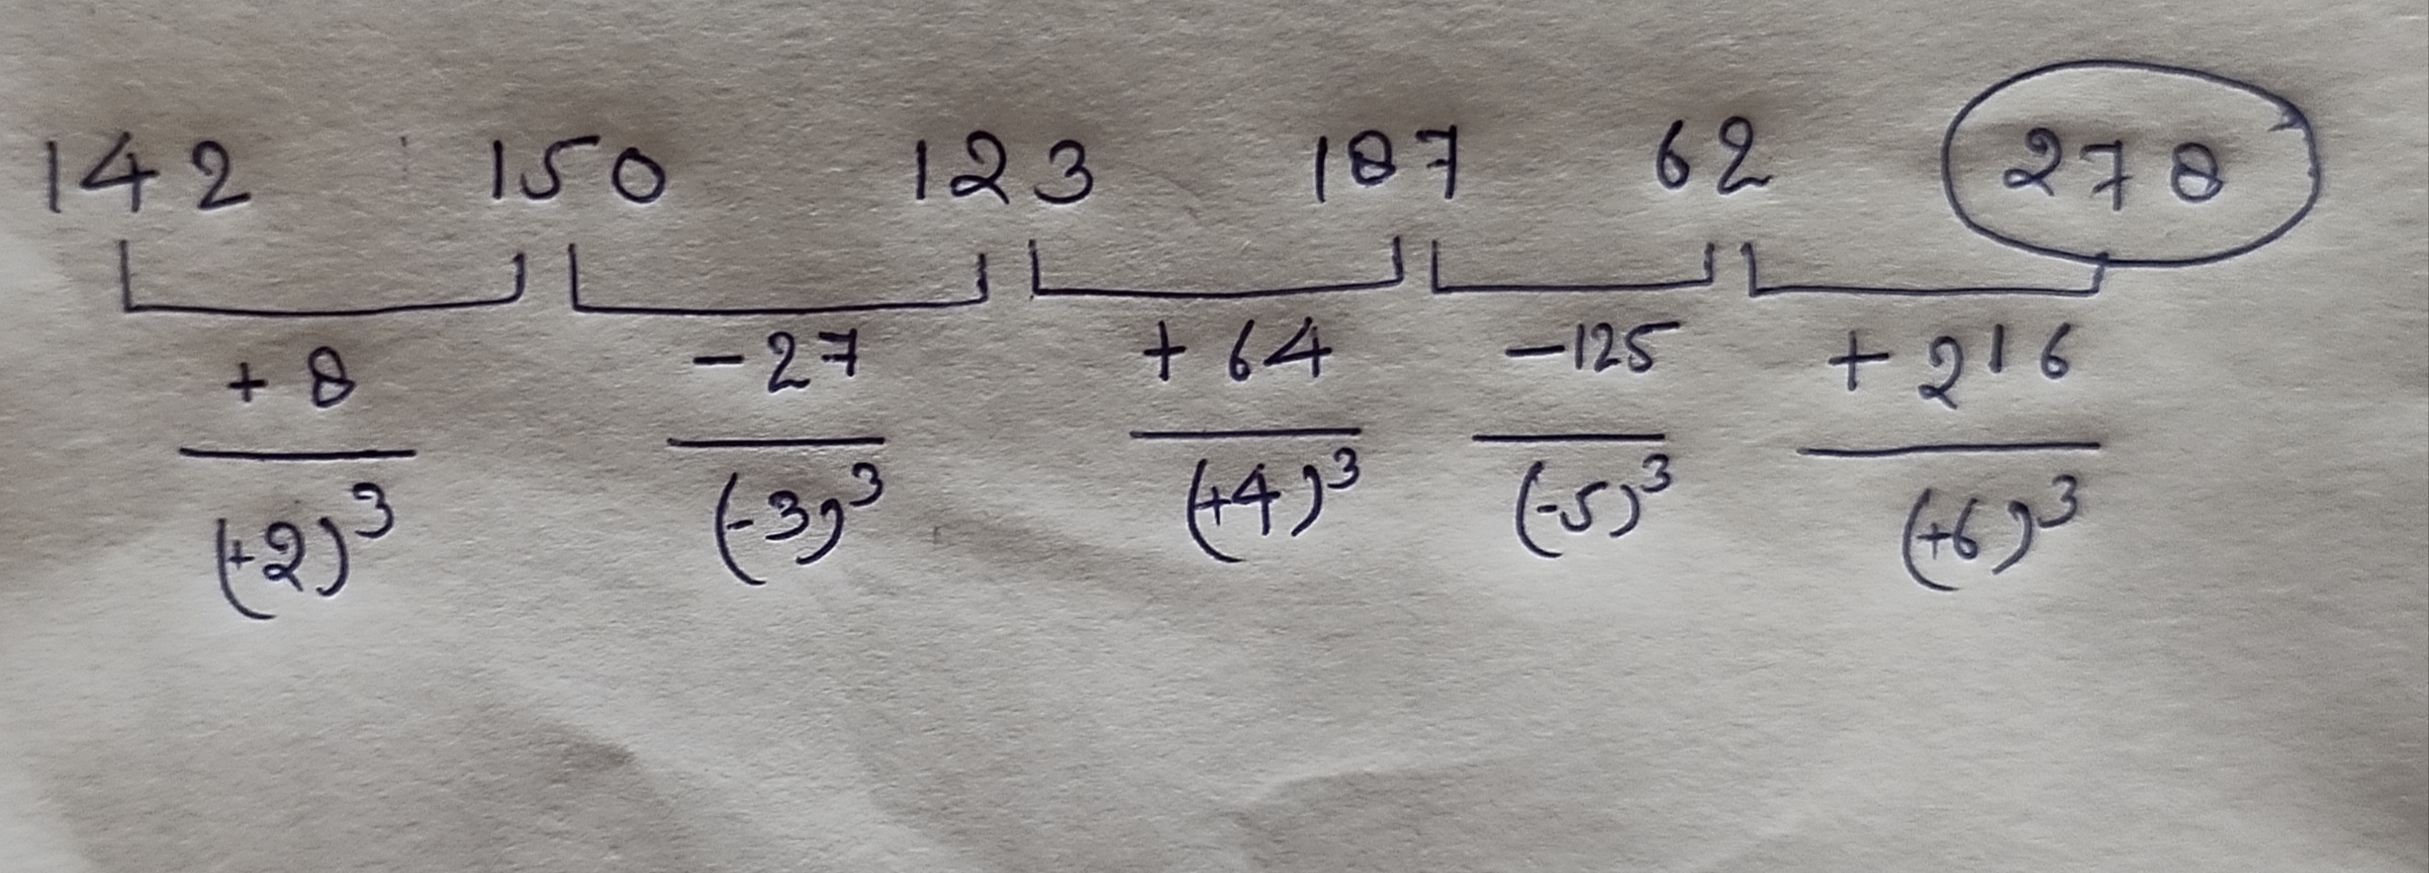 142 150 123 187 62 278
+8 -27 +64 -125 +216
(+2)³ (-3)³ (+4)³ (-5)³ (+6)³